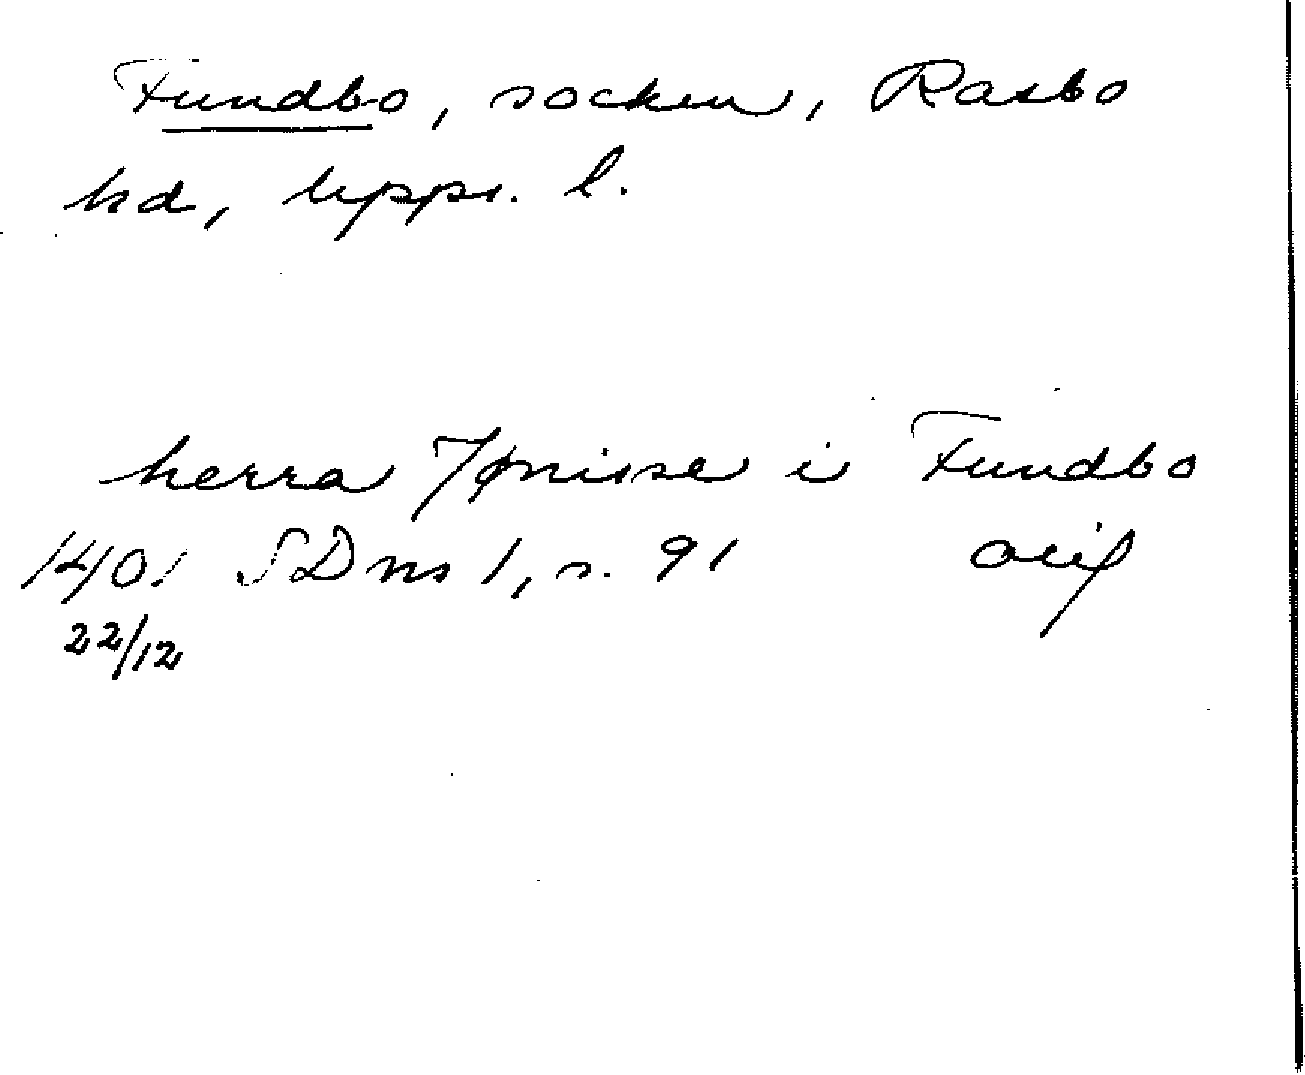 Fundbo, socken, Rasbo
hd, Upps. l.
herra Jønisse i Fundbo
1401 SDns 1, s. 91 avs
22/12